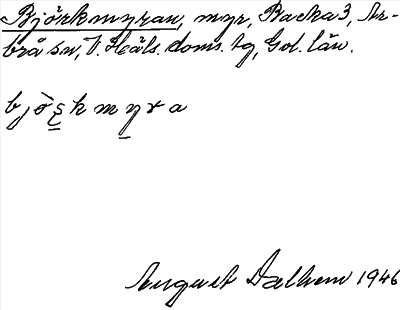 Björkmyran, myr, Backa 3, Ar-
brå sn, V. Häls. doms. tg, Gvl. län.
bjò̈ʂkmyra
August Dalhem 1946